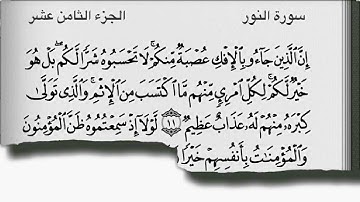 سورة النور الجزء الثامن عشر
إِنَّ ٱلَّذِينَ جَآءُو بِٱلْإِفْكِ عُصْبَةٌ مِّنكُمْ ۚ لَا تَحْسَبُوهُ شَرًّا لَّكُم ۖ بَلْ هُوَ
خَيْرٌ لَّكُمْ ۚ لِكُلِّ ٱمْرِئٍ مِّنْهُم مَّا ٱكْتَسَبَ مِنَ ٱلْإِثْمِ ۚ وَٱلَّذِى تَوَلَّىٰ
كِبْرَهُۥ مِنْهُمْ لَهُۥ عَذَابٌ عَظِيمٌ ١١ لَّوْلَآ إِذْ سَمِعْتُمُوهُ ظَنَّ ٱلْمُؤْمِنُونَ
وَٱلْمُؤْمِنَٰتُ بِأَنفُسِهِمْ خَيْرًا